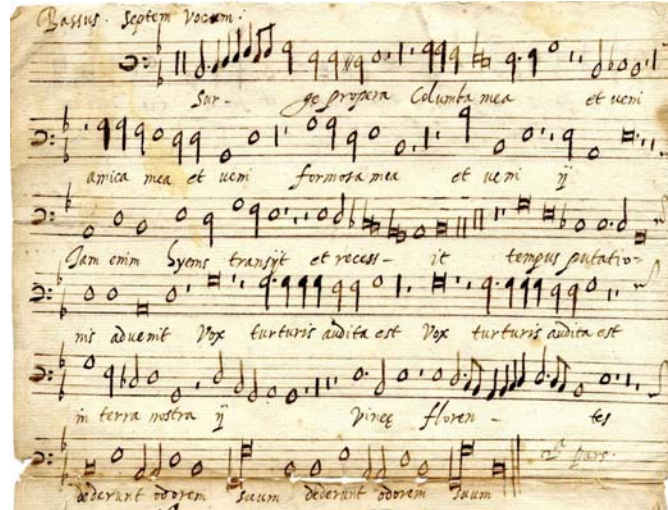 Bassus. Septem Vocum:
Sur- ge propera Columba mea et veni
amica mea et veni formosa mea et veni ij
Jam enim hyems transijt et recess- it tempus putatio-
nis advenit Vox turturis audita est Vox turturis audita est
in terra nostra ij vineę floren- tes
dederunt odorem suum dederunt odorem suum
2ª pars.